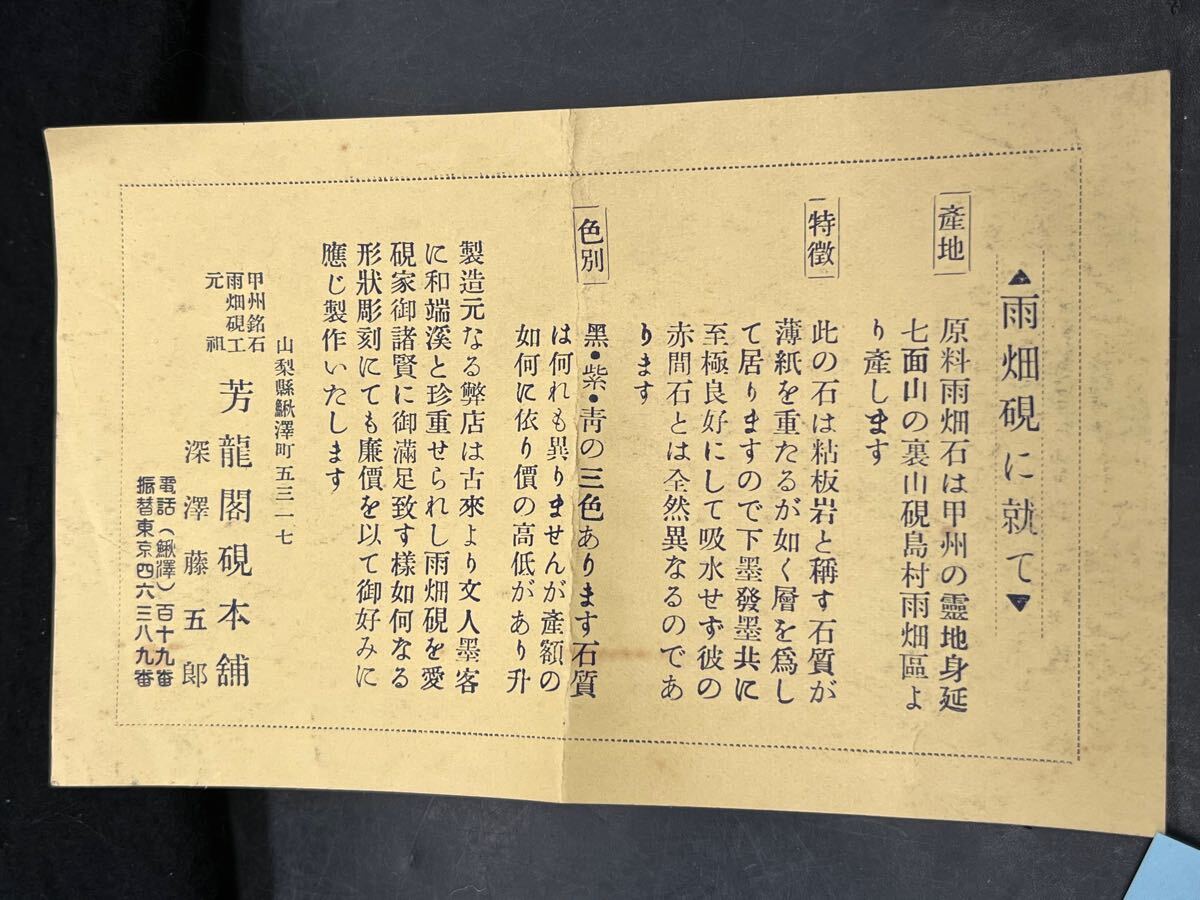 ▲雨畑硯に就て▼
産地
原料雨畑石は甲州の靈地身延
七面山の裏山硯島村雨畑區よ
り産します
特徴
此の石は粘板岩と稱す石質が
薄紙を重たるが如く層を爲し
て居りますので下墨發墨共に
至極良好にして吸水せず彼の
赤間石とは全然異なるのであ
ります
色別
黑・紫・靑の三色あります石質
は何れも異りませんが產額の
如何に依り價の高低があり升
製造元なる弊店は古來より文人墨客
に和端溪と珍重せられし雨畑硯を愛
硯家御諸賢に御滿足致す樣如何なる
形狀彫刻にても廉價を以て御好みに
應じ製作いたします
山梨縣鰍澤町五三一七
甲州銘石
雨畑硯工
元祖
芳龍閣硯本舖
深澤藤五郎
電話(鰍澤)百十九番
振替東京四六三八九番